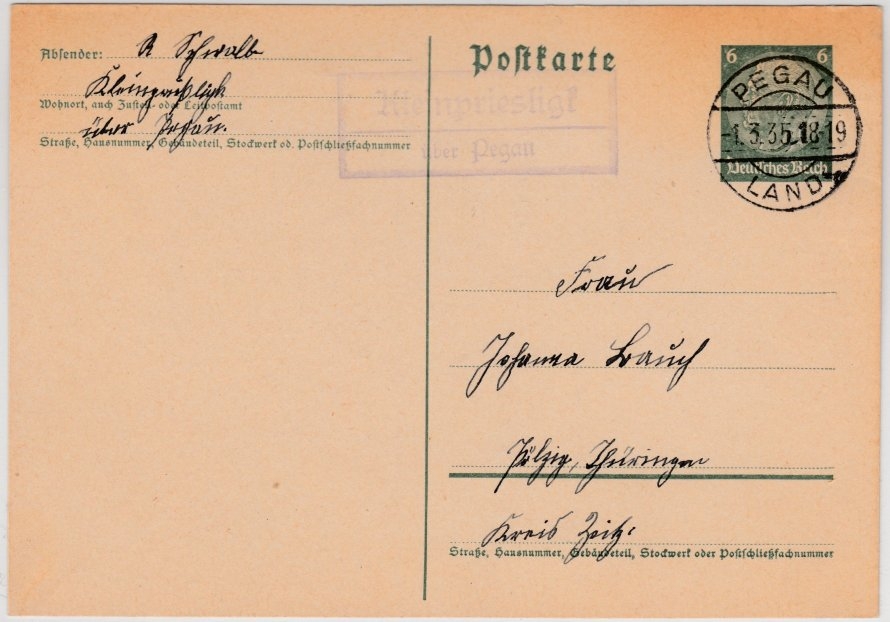 Absender: R Schwalbe
Kleinpriesligk
Wohnort, auch Zustell- oder Leitpostamt
über Pegau.
Straße, Hausnummer, Gebäudeteil, Stockwerk od. Postschließfachnummer
Postkarte
Kleinpriesligk
über Pegau
6 6
Deutsches Reich
PEGAU
-1.3.35.18-19
LAND
Frau
Johanna Bauch
Pölzig, Thüringen
Kreis Zeitz.
Straße, Hausnummer, Gebäudeteil, Stockwerk oder Postschließfachnummer